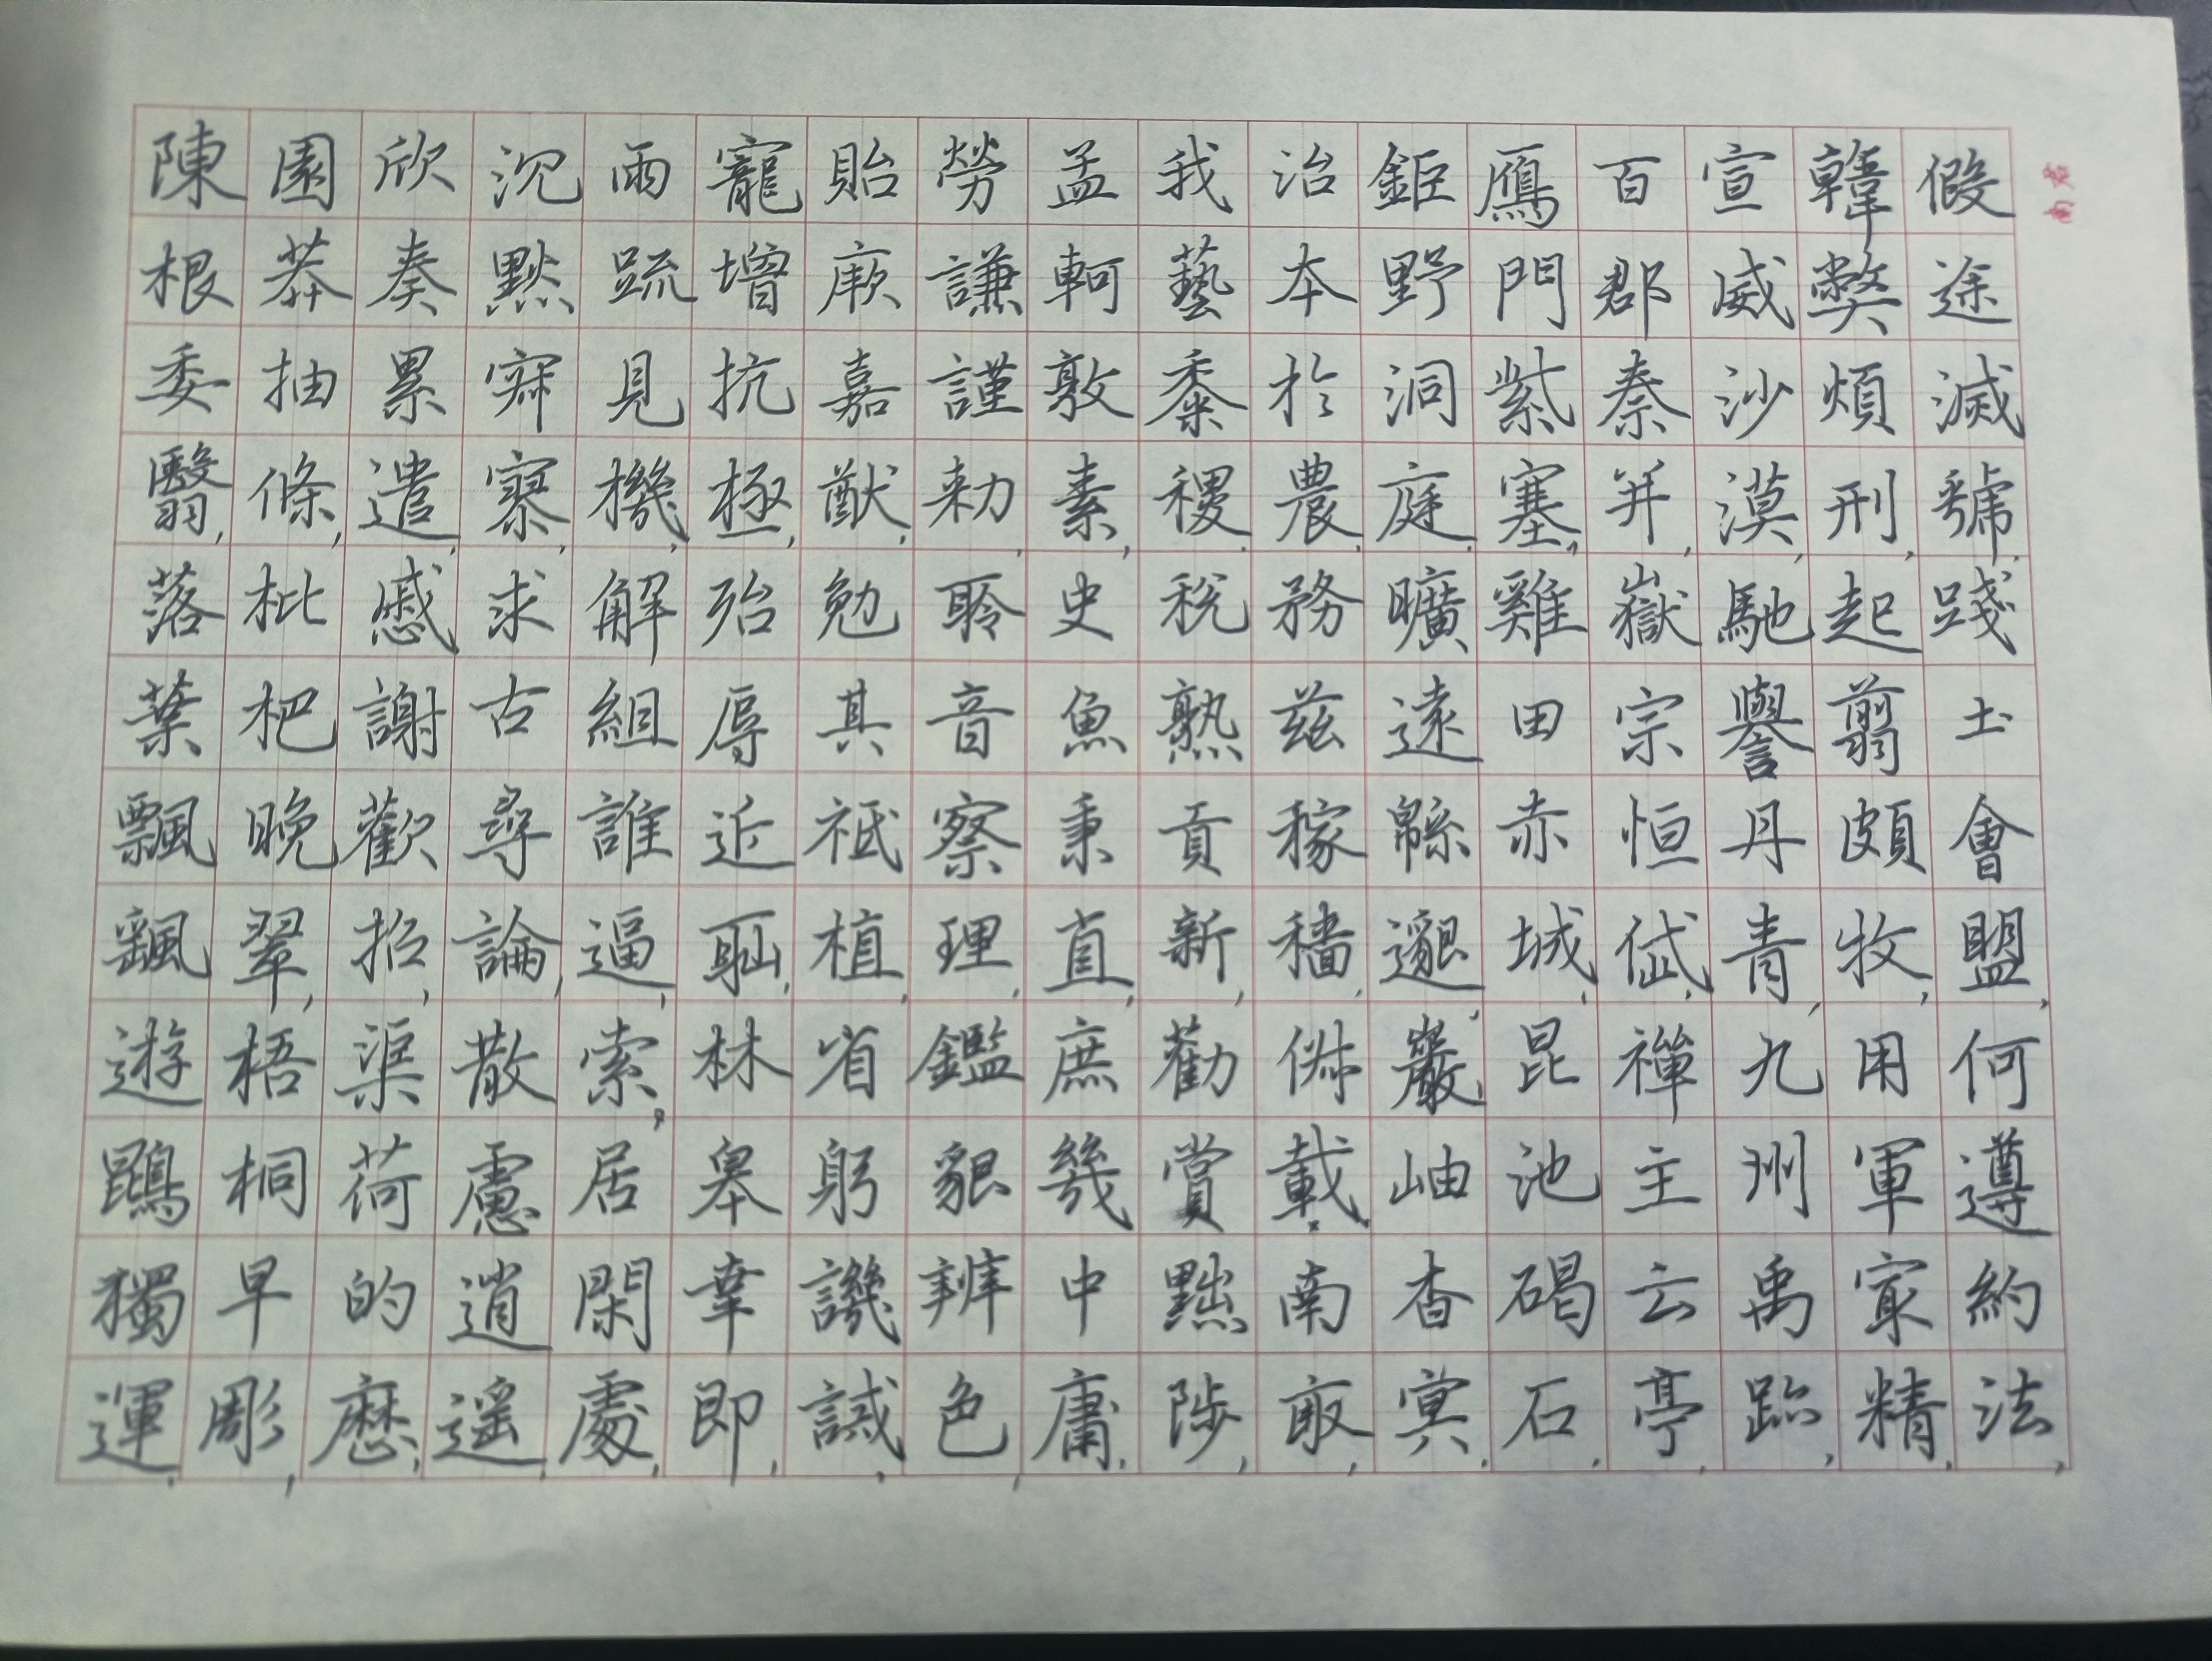 假途滅虢,踐土會盟,何遵約法,
韓弊煩刑,起翦頗牧,用軍㝡精,
宣威沙漠,馳譽丹青,九州禹跡,
百郡秦并,嶽宗恒岱,禪主云亭,
鴈門紫塞,雞田赤城,昆池碣石,
鉅野洞庭,曠遠緜邈,巖岫杳冥,
治本於農,務茲稼穡,俶載南畝,
我藝黍稷,稅熟貢新,勸賞黜陟,
孟軻敦素,史魚秉直,庶幾中庸,
勞謙謹勑,聆音察理,鑑貌辨色,
貽厥嘉猷,勉其祗植,省躬譏誡,
寵增抗極,殆辱近耻,林皋幸即,
兩疏見機,解組誰逼,索居閑處,
沉默寂寥,求古尋論,散慮逍遙,
欣奏累遣,慼謝歡招,渠荷的歷,
園莽抽條,枇杷晚翠,梧桐早彫,
陳根委翳,落葉飄颻,遊鵾獨運,